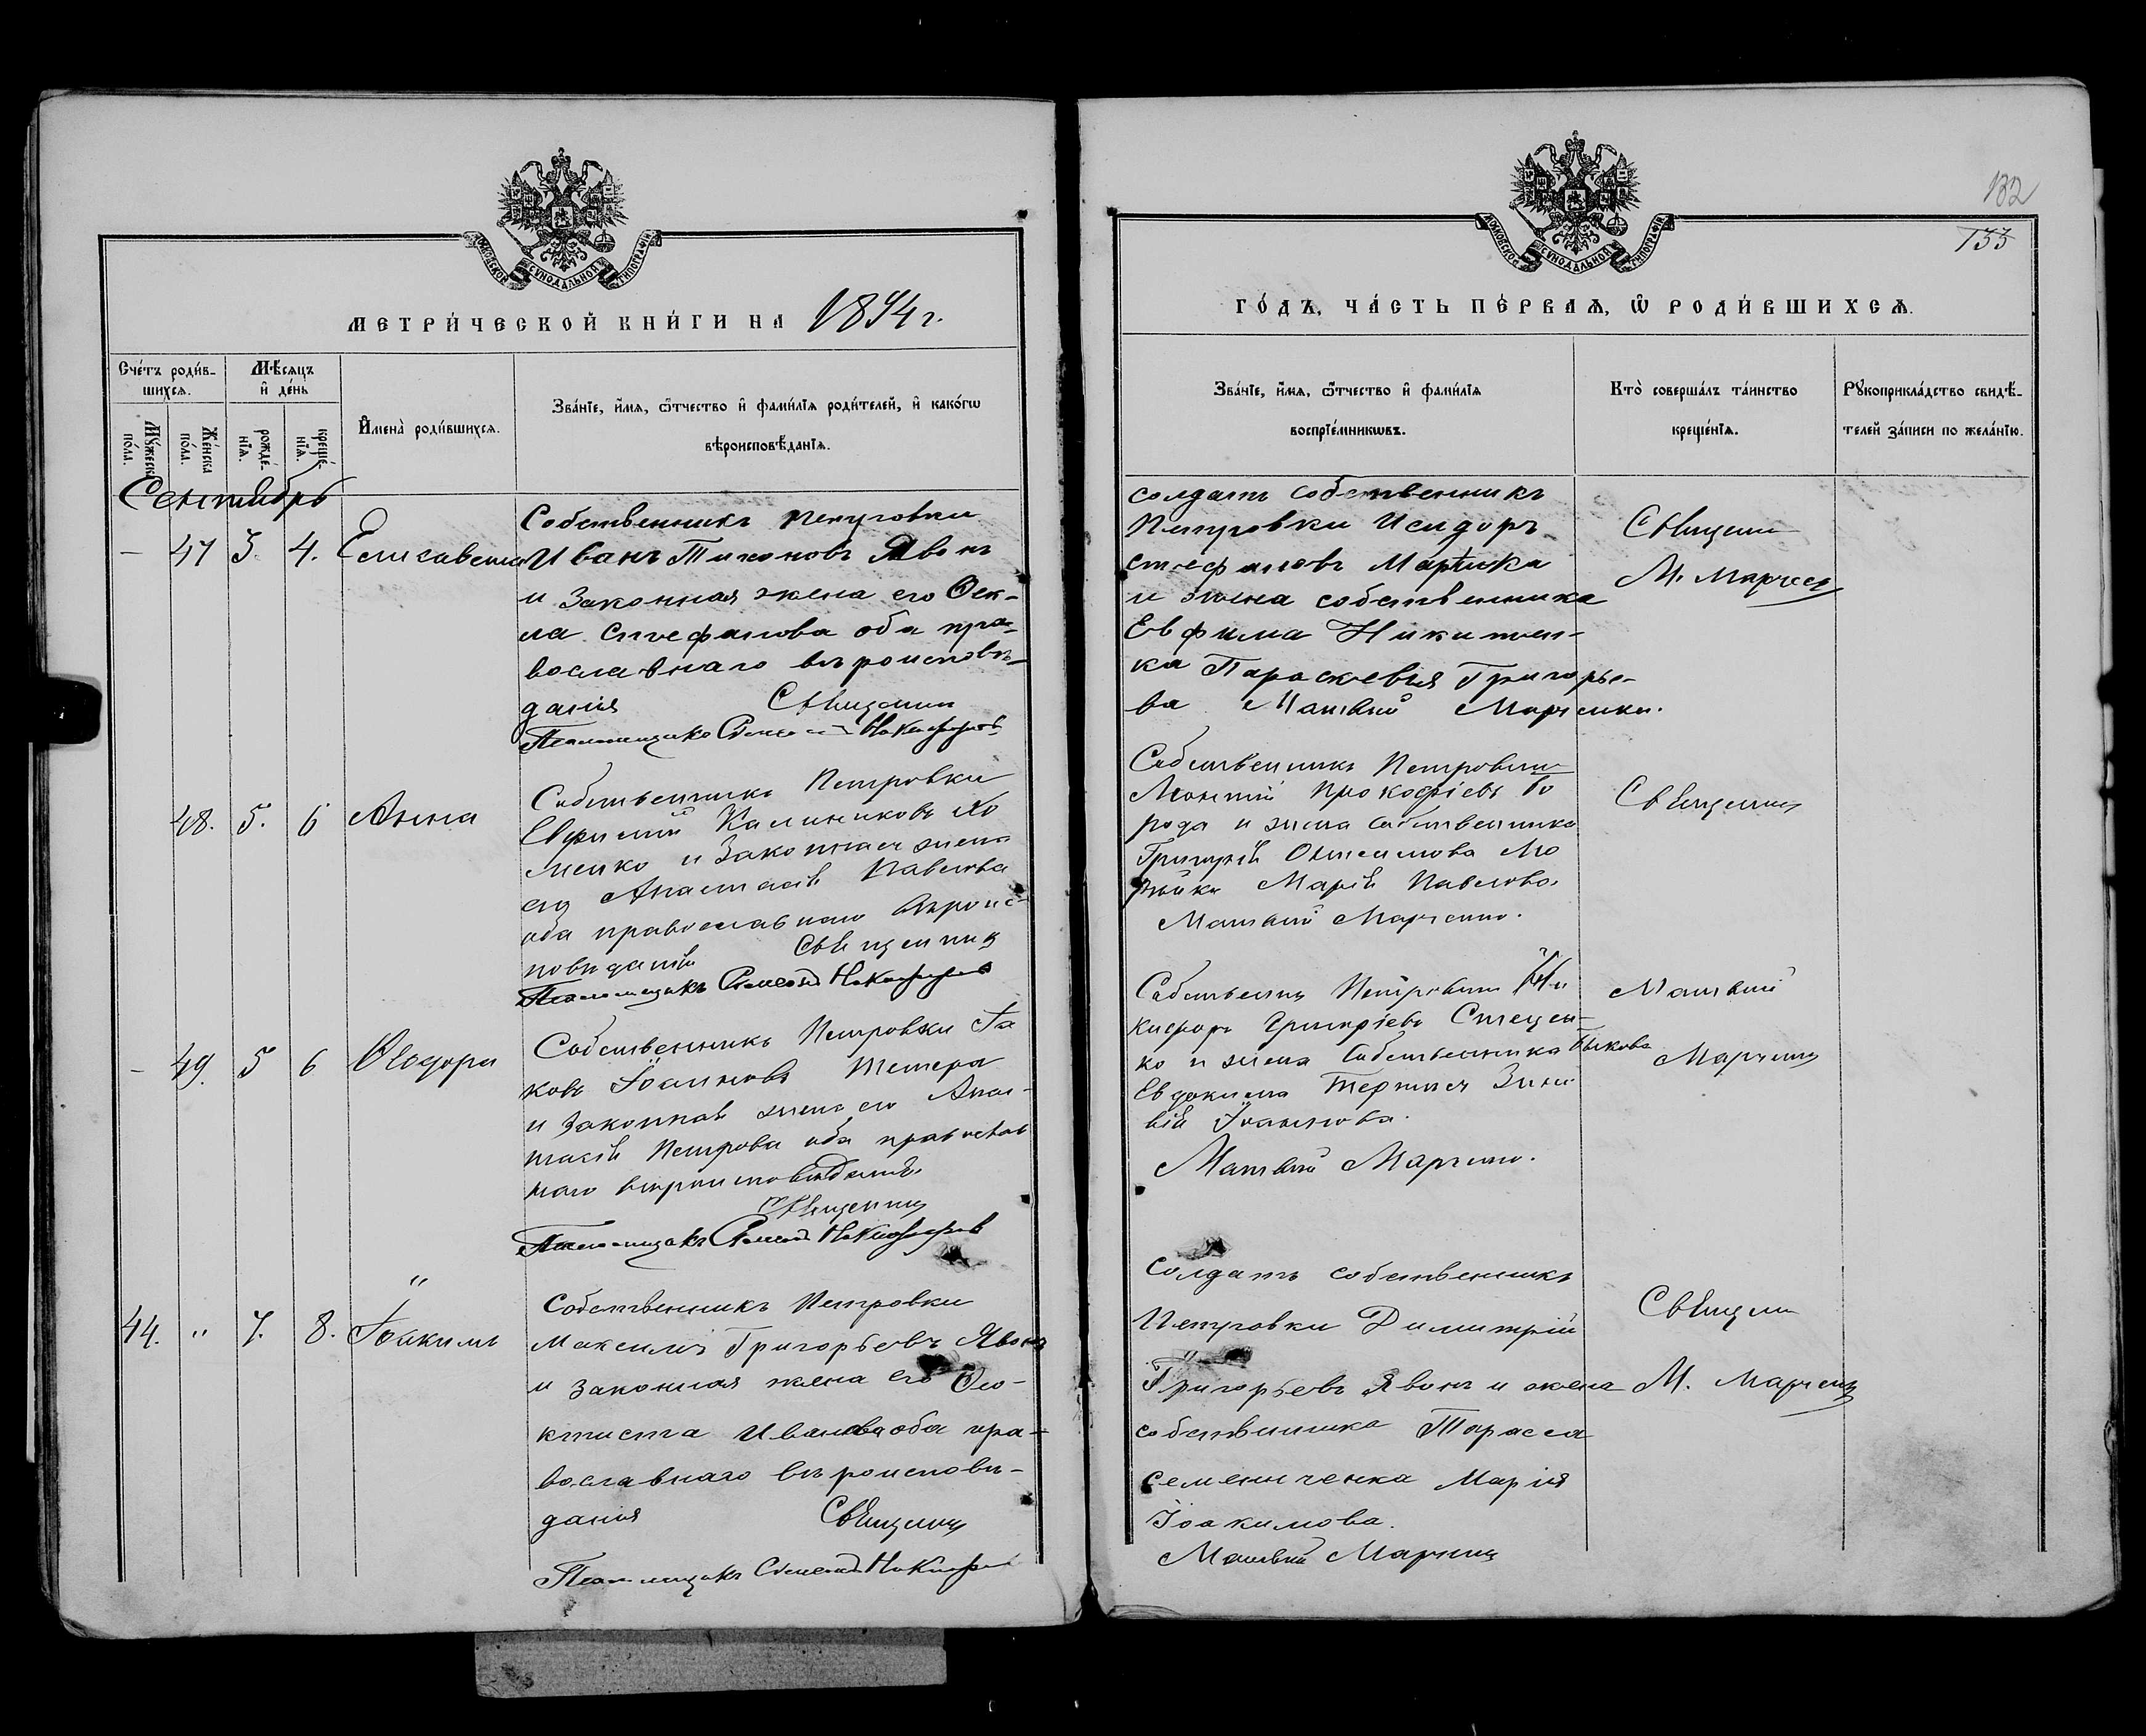 132
133
МОСКОВСКОЙ СѴНОДАЛЬНОЙ ТИПОГРАФІИ
МЕТРИ́ЧЕСКОЙ КНИ́ГИ НА 1894 г.
Сче́тъ роди́в-
шихсѧ.
Мѣ́сѧцъ
и҆ де́нь
Мꙋ́жеска
по́ла.
Же́нска
по́ла.
рожде́-
нїѧ.
креще́-
нїѧ.
И҆мена̀ роди́вшихсѧ.
Зва́нїе, и҆́мѧ, ѻ҆́тчество и҆ фами́лїѧ роди́телей, и҆ како́гѡ
вѣроисповѣ́данїѧ.
Сентябрь
— 47 3. 4. Елисавета
Собственникъ Петровки
Иванъ Тихоновъ Явонъ
и законная жена его Фек-
ла Стефанова оба пра-
вославнаго вѣроисповѣ-
данія Священни
Псаломщикъ Никифоровъ
48. 5. 6 Анна
Собственникъ Петровки
Евфимій Калиниковъ Хо
менко и законная жена
его Анастасія Павлова
оба православнаго вѣроис-
повѣданія Священник
Псаломщикъ Никифоровъ
— 49. 5 6 Ѳеодора
Собственникъ Петровки Іа
ковъ Іоанновъ Тетера
и законная жена его Анас-
тасія Петрова оба православ
наго вѣроисповѣданія
Священник
Псаломщикъ Никифоров
44. " 7. 8. Іоакимъ
Собственникъ Петровки
Максимъ Григорьевъ Явонъ
и законная жена его Фео-
ктиста Иванова оба пра-
вославнаго вѣроисповѣ-
данія Священник
Псаломщикъ Никифо
ГО́ДЪ, ЧА́СТЬ ПЕ́РВАѦ, Ѡ҆ РОДИ́ВШИХСѦ.
Зва́нїе, и҆́мѧ, ѻ҆́тчество и҆ фами́лїѧ
воспрїе́мникѡвъ.
Кто̀ соверша́лъ та́инство
креще́нїѧ.
Рꙋкоприкла́дство свидѣ́-
телей за́писи по жела́нїю.
солдатъ собственникъ
Петровки Исидоръ
Стефановъ
и жена собственника
Евфима Никитен-
ка Параскевія Григорье-
ва Матвій Марченко.
Священни
М. Марченко
Собственникъ Петровки
Прокофіевъ Го
рода и жена собственника
Марія Павлова
Матвій Марченко.
Священник
Собственник Петровки Ни
кифоръ Григоріевъ Стецен-
ко и жена собственника Быкова
Евдокима Зино
вія Іоаннова.
Матвій Марченко.
Матвій
Марченко
Солдатъ собственникъ
Петровки Димитрій
Григорьевъ Явонъ и жена
собственника Тарасса
Семениченка Марія
Іоакимова.
Матвій Марченко
Священни
М. Марченко